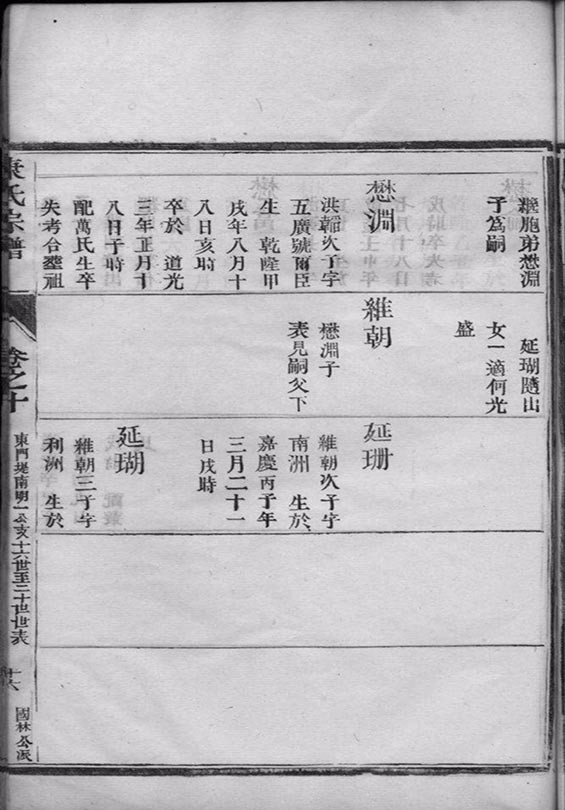 繼胞弟懋淵
子爲嗣
懋淵
洪韜次子字
五廣號爾臣
生 乾隆甲
戌年八月十
八日亥時
卒於 道光
三年正月十
八日子時
配萬氏生卒
失考合塟祖
延瑚隨出
女一適何光
盛
維朝
懋淵子
表見嗣父下
延珊
維朝次子字
南洲 生於
嘉慶丙子年
三月二十一
日戌時
延瑚
維朝三子字
利洲 生於
氏宗譜
卷之十
東門堤南明一公亥十六世至二十世世表
十六
國林公派